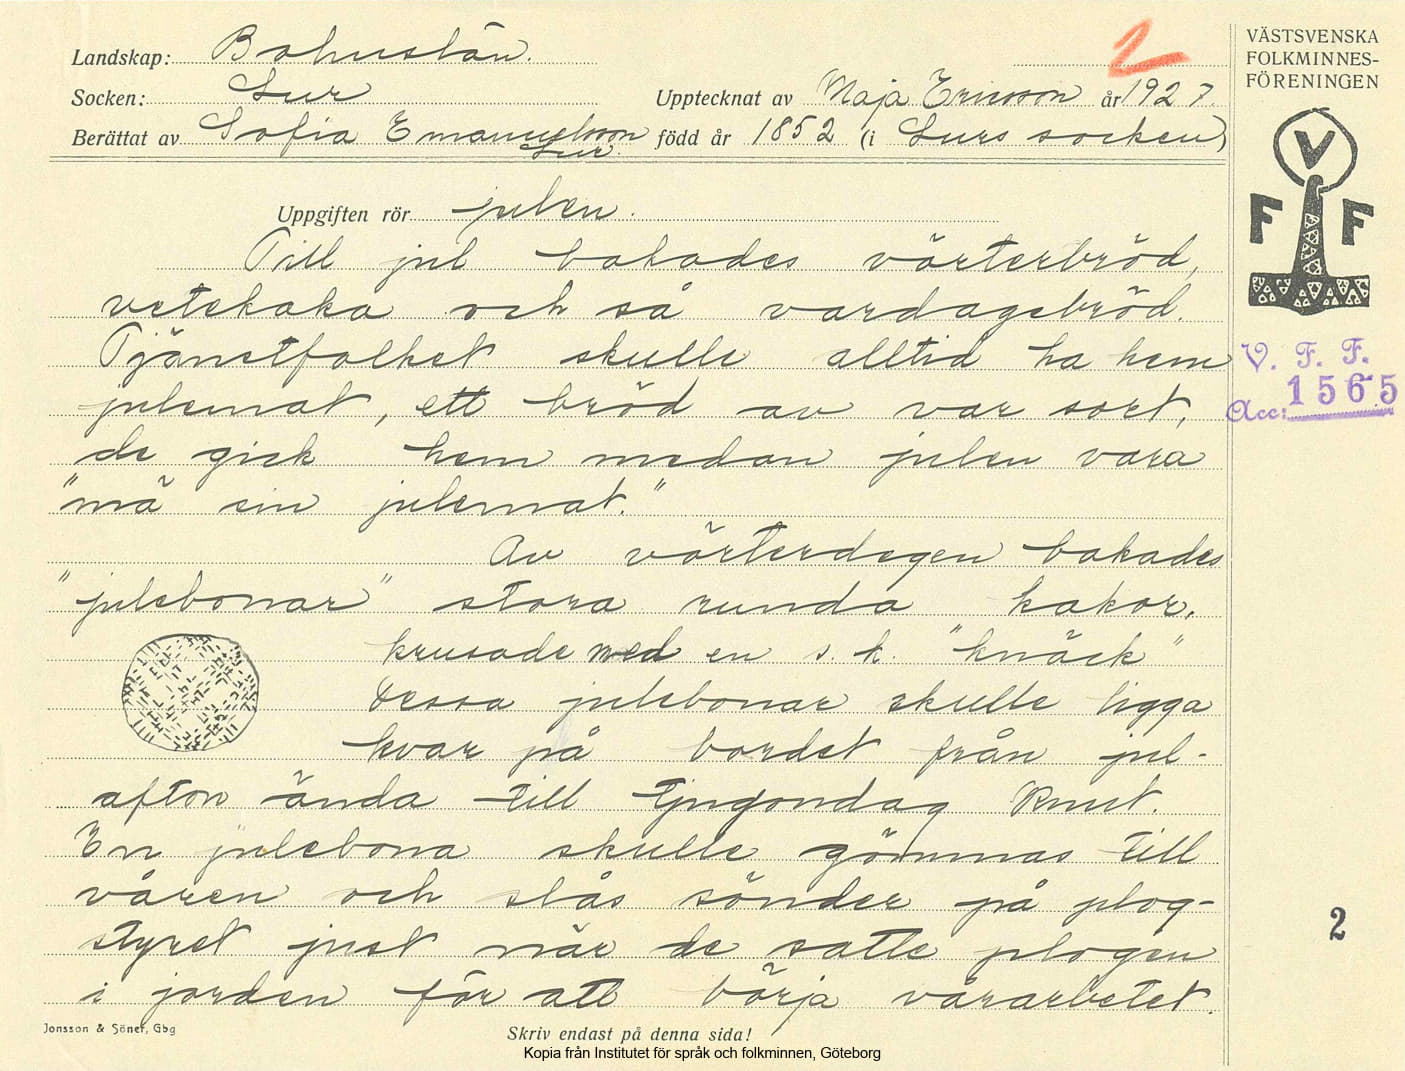 Landskap: Bohuslän.
Socken: Lur
Upptecknat av Maja Ericsson år 1927.
Berättat av Sofia Emanuelsson född år 1852 (i Lurs socken)
Lur.
2
VÄSTSVENSKA
FOLKMINNES-
FÖRENINGEN
V
F F
V. F. F.
Acc: 1565
Uppgiften rör julen.
Till jul bakades vörterbröd,
vetekaka och så vardagsbröd.
Tjänstfolket skulle alltid ha hem
julemat, ett bröd av var sort,
de gick hem medan julen vara
"mä sin julemat."
Av vörterdegen bakades
"julebonar" stora runda kakor,
krusade med en s.k. "knäck"
Dessa julebonar skulle ligga
kvar på bordet från jul-
afton ända till tjugondag Knut.
En julebona skulle gömmas till
våren och slås sönder på plog-
styret just när de satte plogen
i jorden för att börja vårarbetet.
2
Jonsson & Söner, Gbg
Skriv endast på denna sida!
Kopia från Institutet för språk och folkminnen, Göteborg